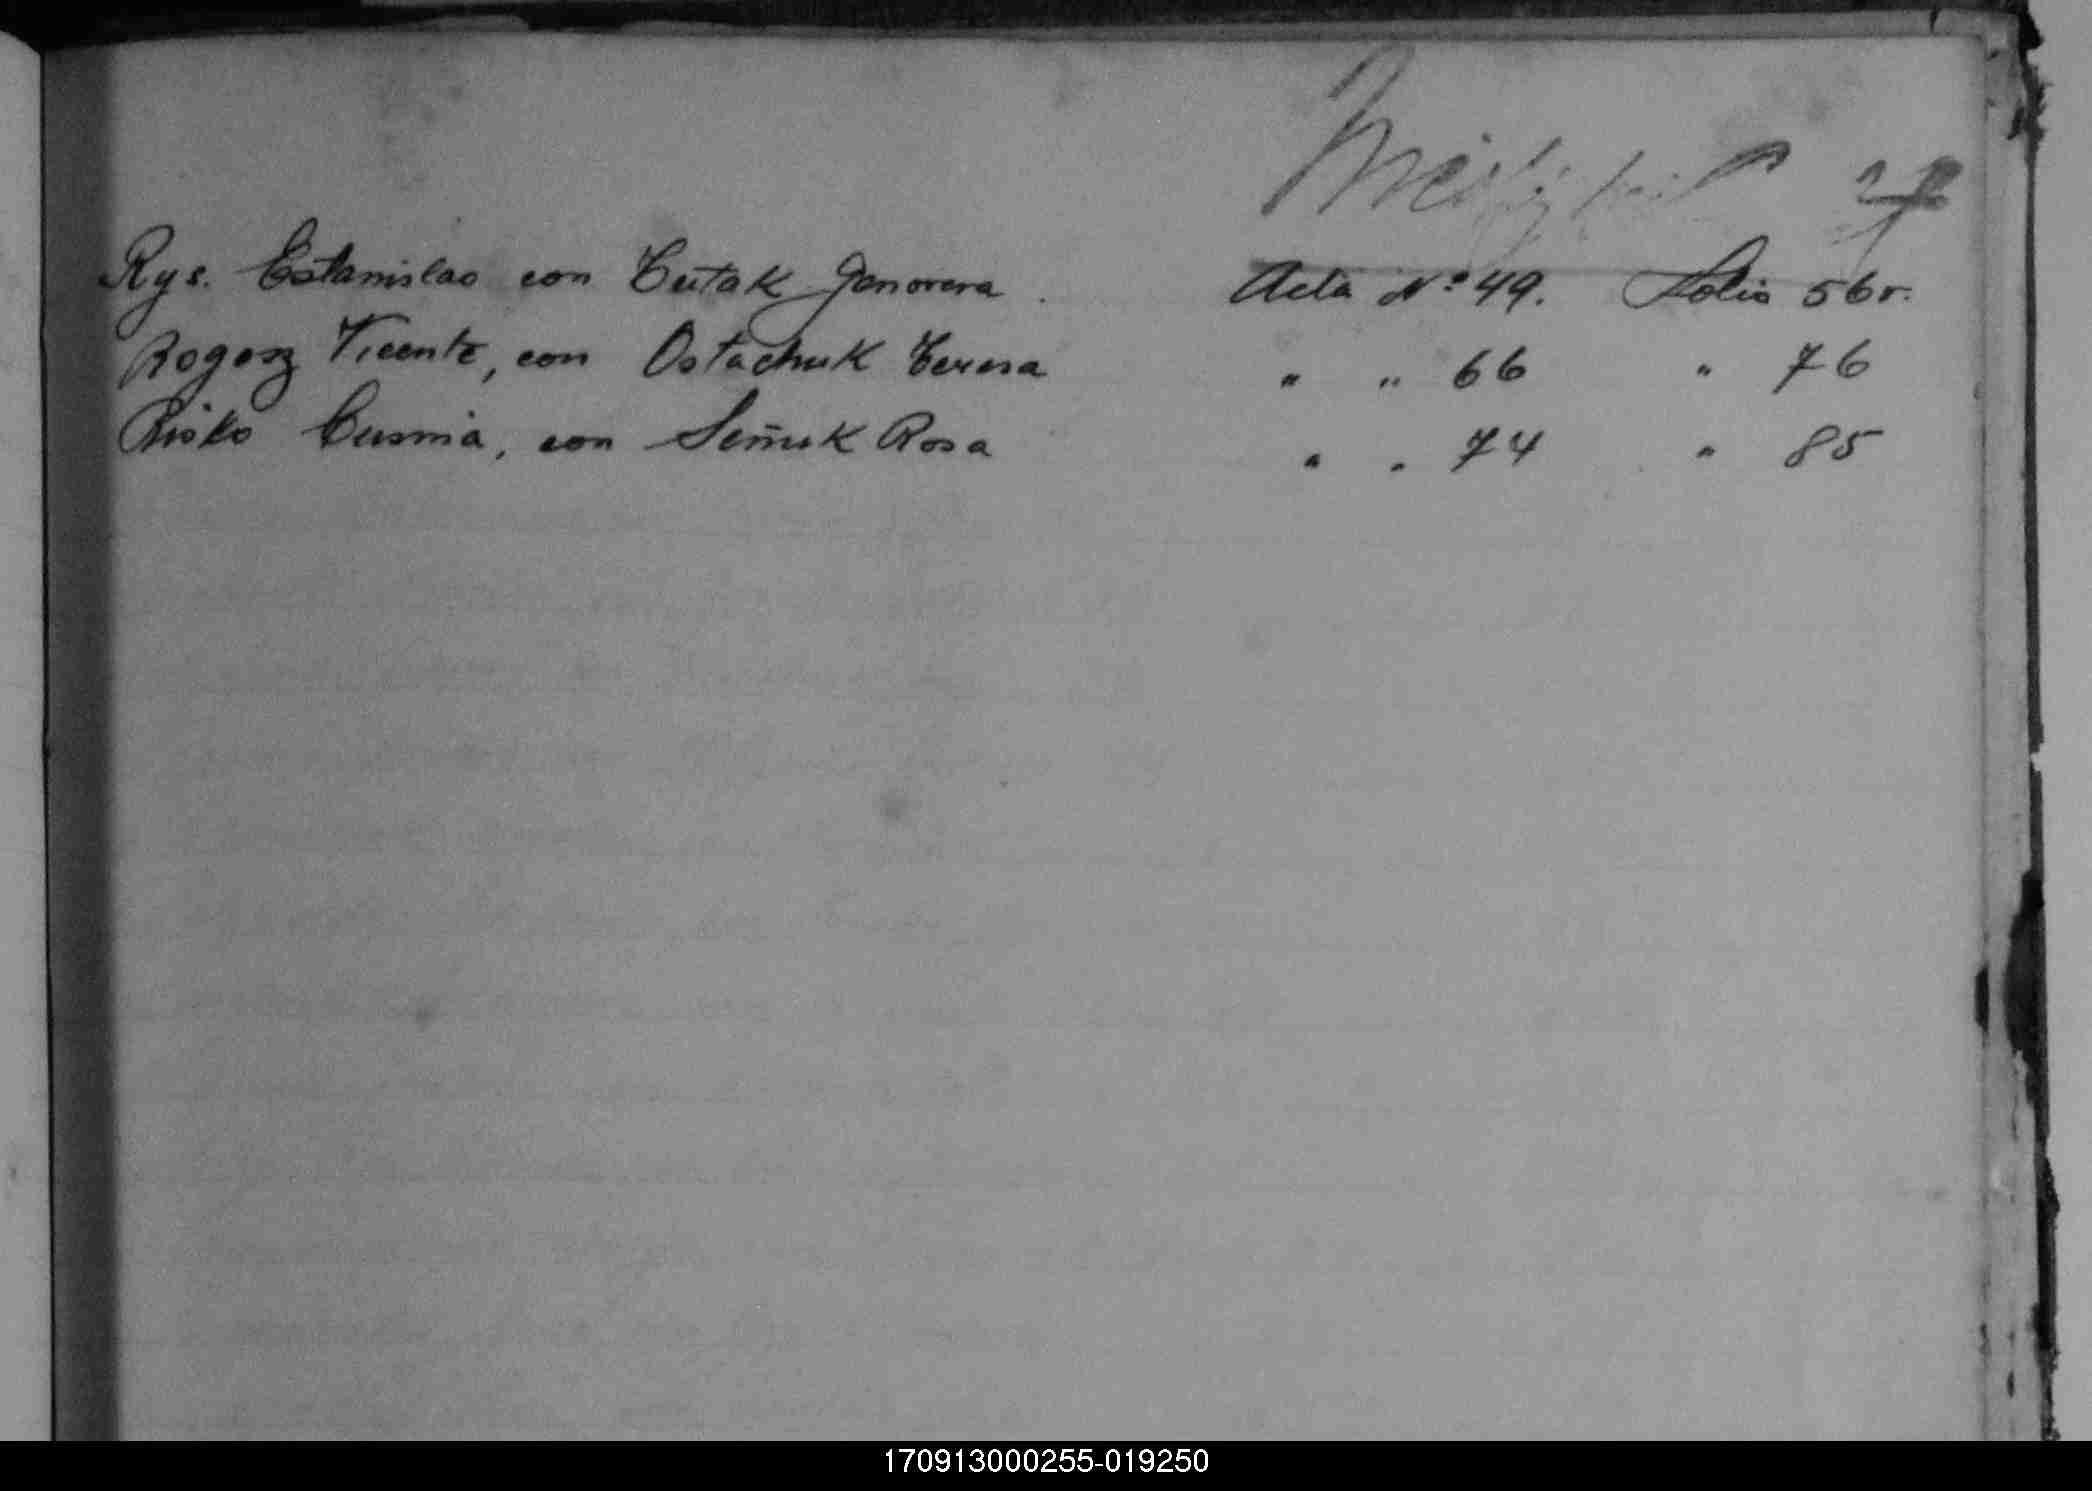 Rys. Estanislao con Tutak Genoveva Acta Nº 49. Folio 56 v.
Rogosz Vicente, con Ostachuk Teresa " " 66 " 76
Risko Cusmia, con Semuk Rosa " " 74 " 85
170913000255-019250